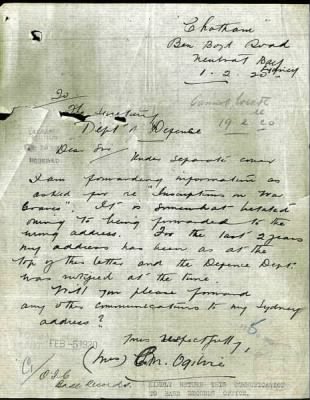 "Chatham"
Ben Boyd Road
Neutral Bay
Sydney
1. 2. 20
To
The Secretary
Dept of Defence
19 2 20
Dear Sir
Under separate cover
I am forwarding information as
asked for re "Inscription on War
Graves". It is somewhat belated
owing to being forwarded to the
wrong address. For the last 2 years
my address has been as at the
top of this letter and the Defence Dept.
was notified at the time.
Will you please forward
any other communications to my Sydney
address?
Yours respectfully,
(Mrs) M. Ogilvie
FEB -5 1920
O.I.C
Base Records.
KINDLY RETURN THIS COMMUNICATION
TO BASE RECORDS OFFICE.